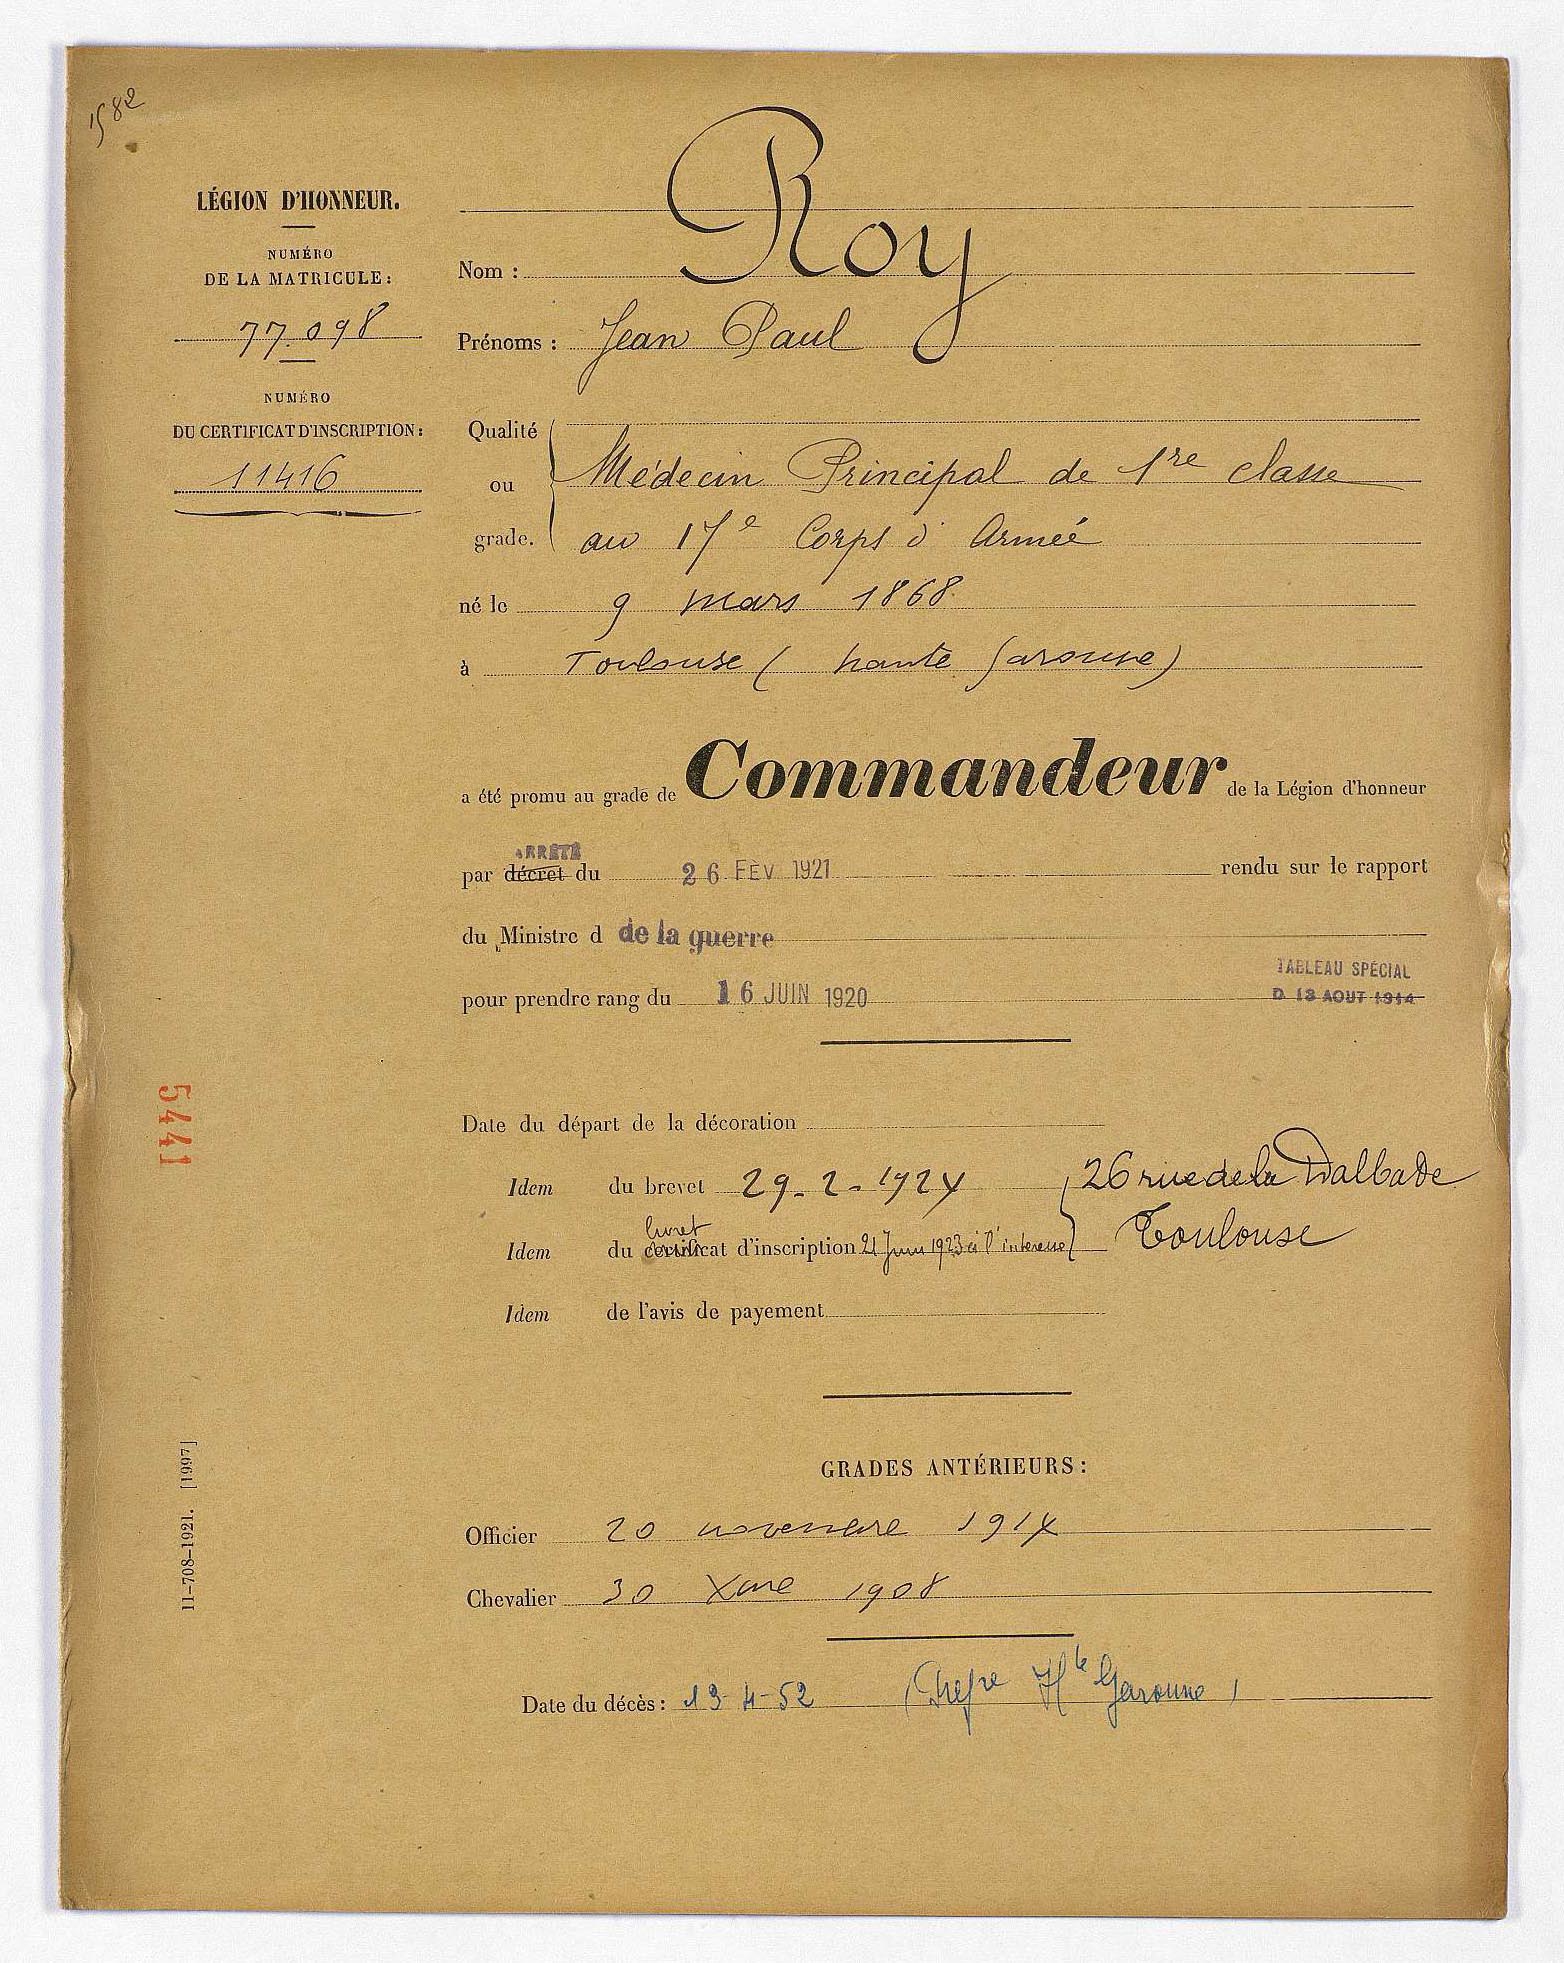 1582
LÉGION D'HONNEUR.
NUMÉRO
DE LA MATRICULE :
77.098
NUMÉRO
DU CERTIFICAT D'INSCRIPTION :
11416
Nom : Roy
Prénoms : Jean Paul
Qualité ou grade. Médecin Principal de 1re classe
au 17e Corps d'Armée
né le 9 mars 1868
à Toulouse (haute Garonne)
a été promu au grade de Commandeur de la Légion d'honneur
ARRÊTÉ
par décret du 26 FÉV 1921 rendu sur le rapport
du Ministre d de la guerre
TABLEAU SPÉCIAL
pour prendre rang du 16 JUIN 1920 D 13 AOUT 1914
Date du départ de la décoration
Idem du brevet 29-2-1924 26 rue de la Dalbade
livret
Idem du certificat d'inscription 21 Juin 1923 à l'interessé Toulouse
Idem de l'avis de payement
5441
GRADES ANTÉRIEURS :
Officier 20 novembre 1914
Chevalier 30 Xbre 1908
Date du décès : 13-4-52 (Prefre Hte Garonne)
11-708-1921. [1997]